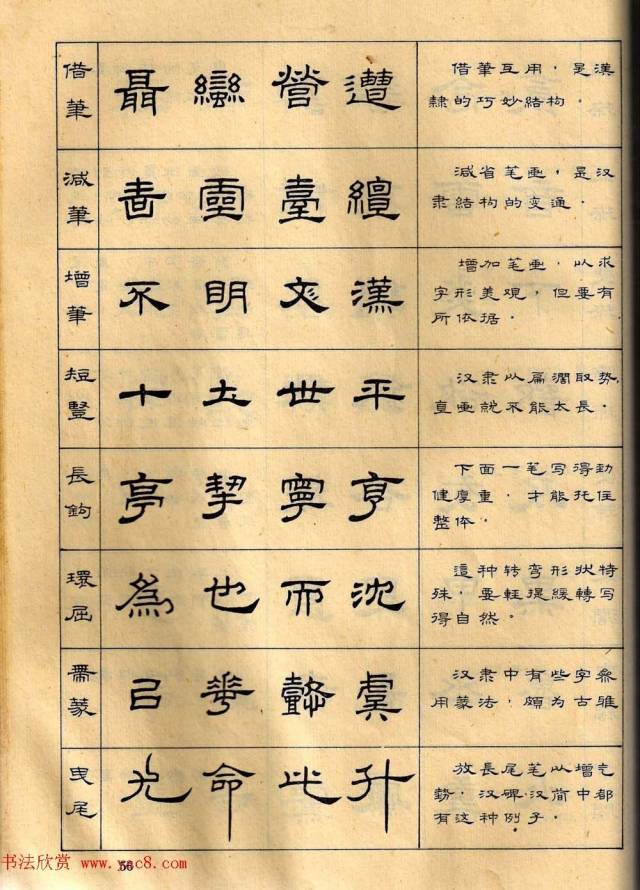 借筆
聶 營 遭
借筆互用，是漢
隸的巧妙結构．
減筆
書 靈 臺 繵
減省笔画，是汉
隶結构的变通．
增筆
不 明 漢
增加笔画，以求
字形美观，但要有
所依据．
短豎
十 土 世 平
汉隶以扁濶取势，
直画就不能太長．
長鉤
亭 挈 寧 亨
下面一笔写得劲
健厚重，才能托住
整体．
環屈
為 也 而 沈
這种转弯形状特
殊，要輕提緩轉写
得自然．
帶篆
華 懿 虞
汉隶中有些字参
用篆法，頗为古雅
曳尾
光 命 升
放長尾笔以增气
势．汉碑．汉简中都
有这种例子．
56
书法欣赏 www.yac8.com